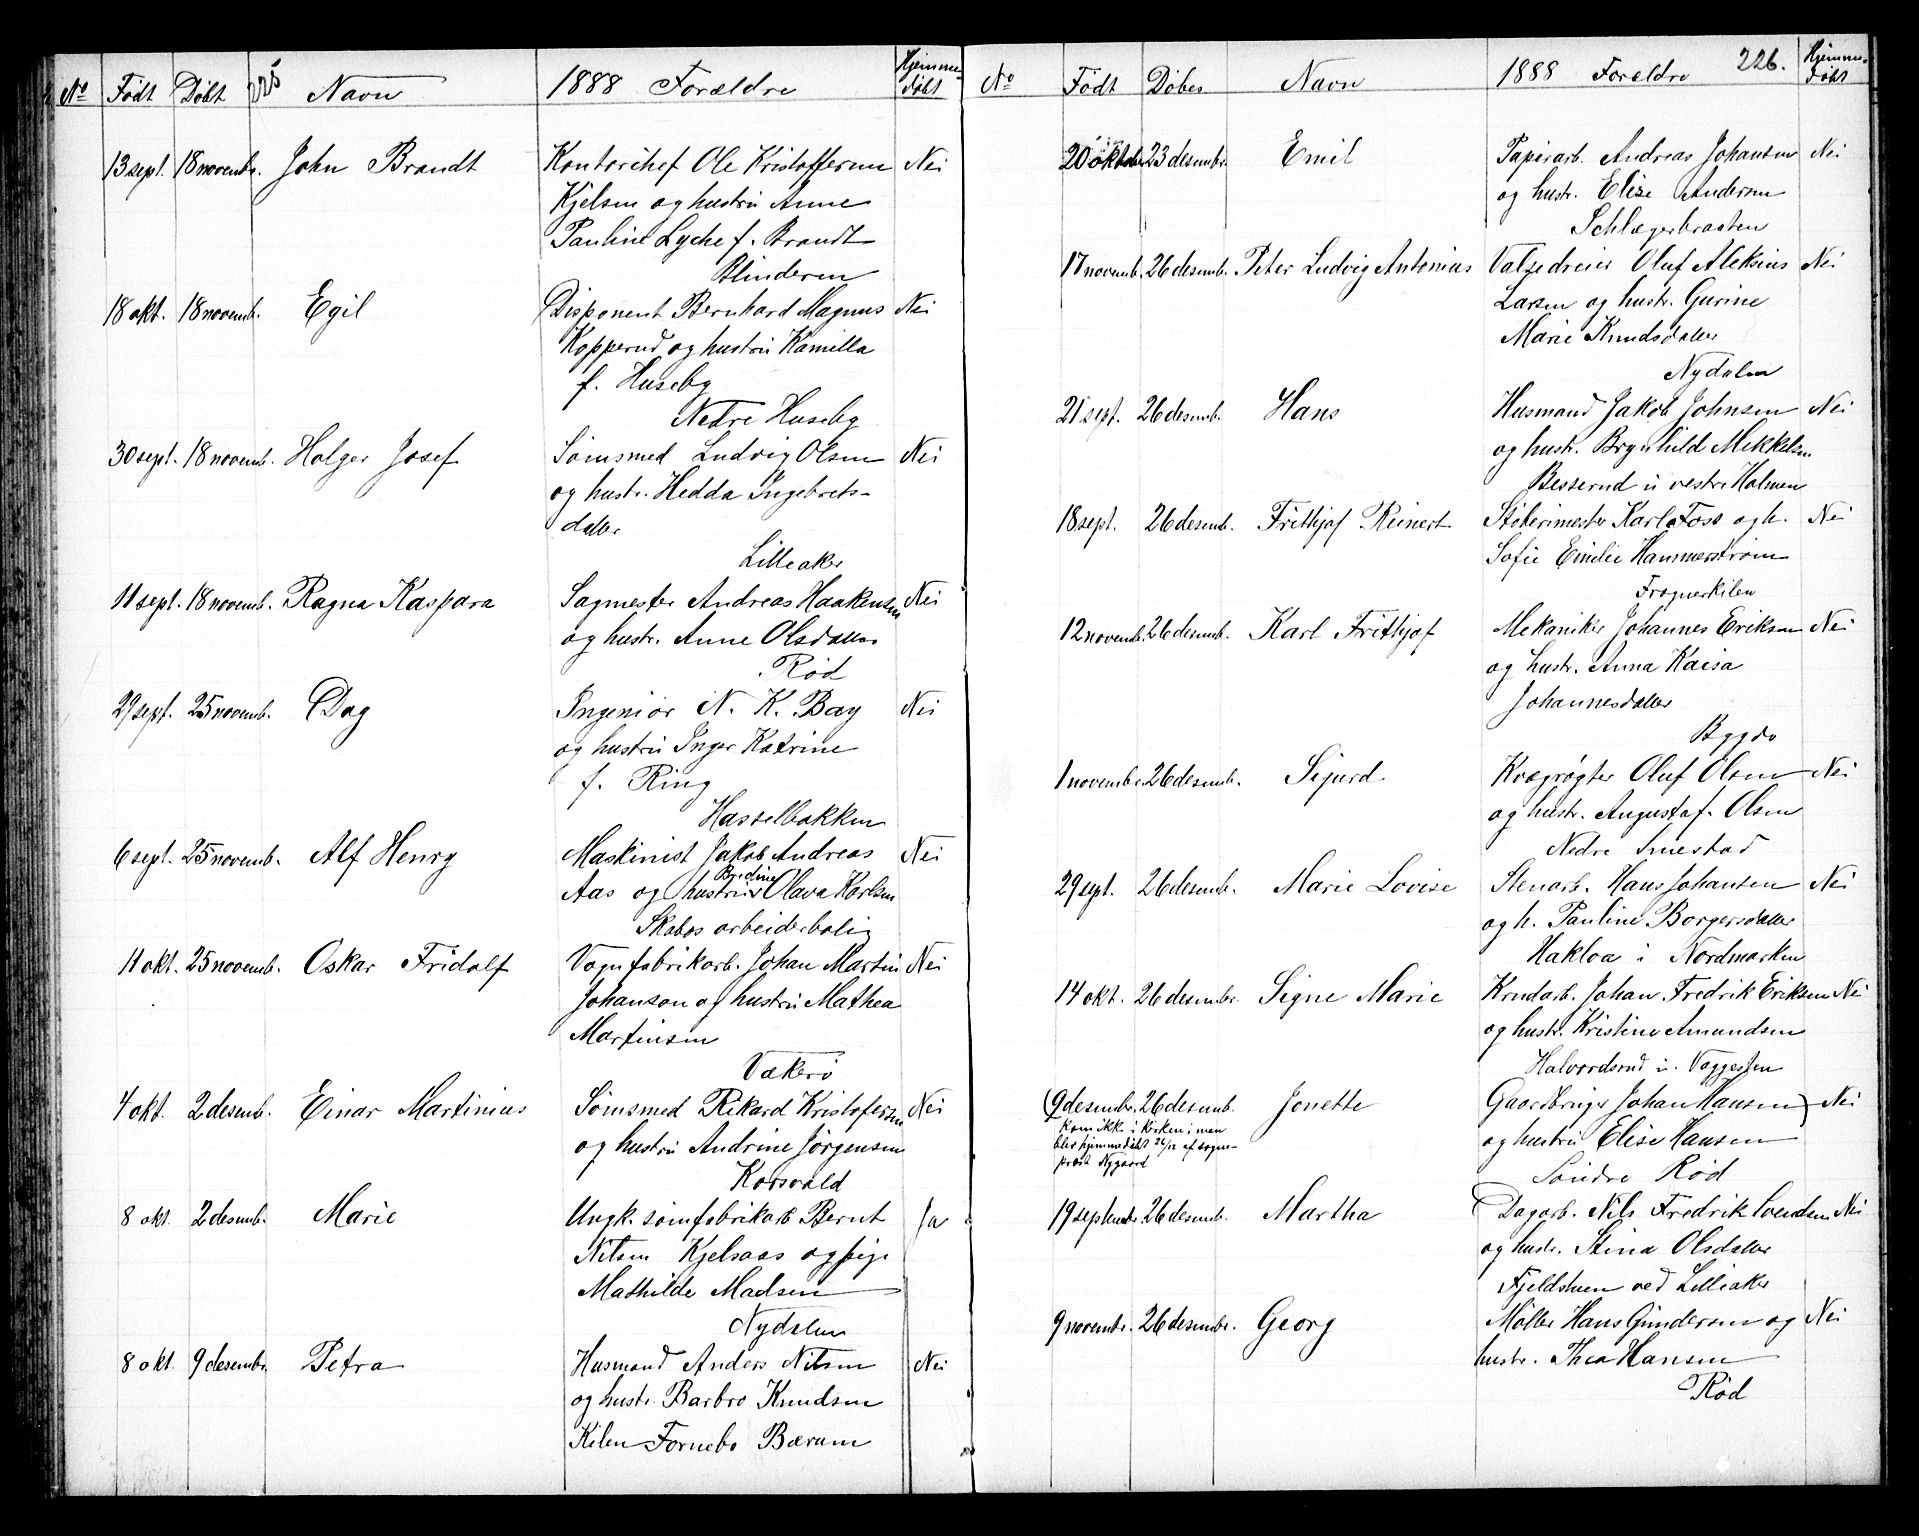 No Født Døbt Navn 1888 Forældre Hjemmedøbt
13 sept. 18 novembr. John Brandt Kontorchef Ole Kristoffersen Nei
Kjelsen og hustru Anne
Pauline Lyche f. Brandt
Blindern
18 okt. 18 novemb. Egil Disponent Bernhard Magnus Nei
Kopperud og hustru Kamilla
f. Huseby
Nedre Huseby
30 sept. 18 novemb. Holger Josef Sømsmed Ludvig Olsen Nei
og hustr. Hedda Ingebrets-
datter
Lilleaker
11 sept. 18 novemb. Ragna Kaspara Sagmester Andreas Haakensen Nei
og hustr. Anne Olsdatter
Rød
29 sept. 25 novemb. Dag Ingeniør N. K. Bay Nei
og hustru Inger Katrine
f. Ring
Hasselbakken
6 sept. 25 novemb. Alf Henry Maskinist Jakob Andreas Nei
Aas og hustru Bredine Olava Karlsen
Skabos arbeiderbolig
11 okt. 25 novemb. Oskar Fridolf Vognfabrikarb. Johan Martin Nei
Johanson og hustru Mathea
Martinsen
Vækerø
4 okt. 2 desemb. Einar Martinius Sømsmed Rikard Kristofersen Nei
og hustru Andrine Jørgensen
Korsvold
8 okt. 2 desemb. Marie Ungk. sømfabrikarb Bernt Ja
Nilsen Kjelsaas og pige
Mathilde Madsen
Nydalen
8 okt. 9 desembr. Petra Husmand Anders Nilsen Nei
og hustr. Barbro Knudsen
Kilen Fornebo Bærum
No Født Døbes Navn 1888 Forældre 226. Hjemmedøbt
20 oktober 23 desembr. Emil Papirarb. Andreas Johansen Nei
og hustr. Elise Andersen
Schlægerbraaten
17 novemb. 26 desemb. Peter Ludvig Antonius Valsedreier Oluf Aleksius Nei
Larsen og hustr. Gurine
Marie Knudsdatter
Nydalen
21 sept. 26 desemb. Hans Husmand Jakob Johnsen Nei
og hustr. Brynhild Mikkelsen
Besserud u vestre Holmen
18 sept. 26 desemb. Frithjof Reinert Støberimester Karl Foss og h. Nei
Sofie Emilie Hammerstrøm
Frognerkilen
12 novemb. 26 desemb. Karl Frithjof Mekaniker Johannes Eriksen Nei
og hustr. Anna Kaisa
Johannesdatter
Bygdø
1 novembr. 26 desemb. Sigurd Kvægrøgter Oluf Olsen Nei
og hustr. Augusta f. Olsen
Nedre Smestad
29 sept. 26 desemb. Marie Lovise Stenarb. Hans Johansen Nei
og h. Pauline Borgersdatter
Hakloa i Nordmarken
14 okt. 26 desembr. Signe Marie Krudarb. Johan Fredrik Eriksen Nei
og hustr. Kristine Amundsen
Halvordsrud u. Voggesten
(9 desembr. 26 desemb. Jonette Gaardbruger Johan Hansen) Nei
kom ikke i kirken; men
blev hjemmedøbt 26/12 af sogne-
præst Nygaard
og hustru Elise Hansen
Søndre Rød
19 septembr. 26 desemb. Martha Dagarb. Nils Fredrik Svendsen Nei
og hustr. Stina Olsdatter
Fjeldstuen ved Lilleaker
9 novembr. 26 desembr. Georg Møller Hans Gundersen og Nei
hustr. Thea Hansen
Rød